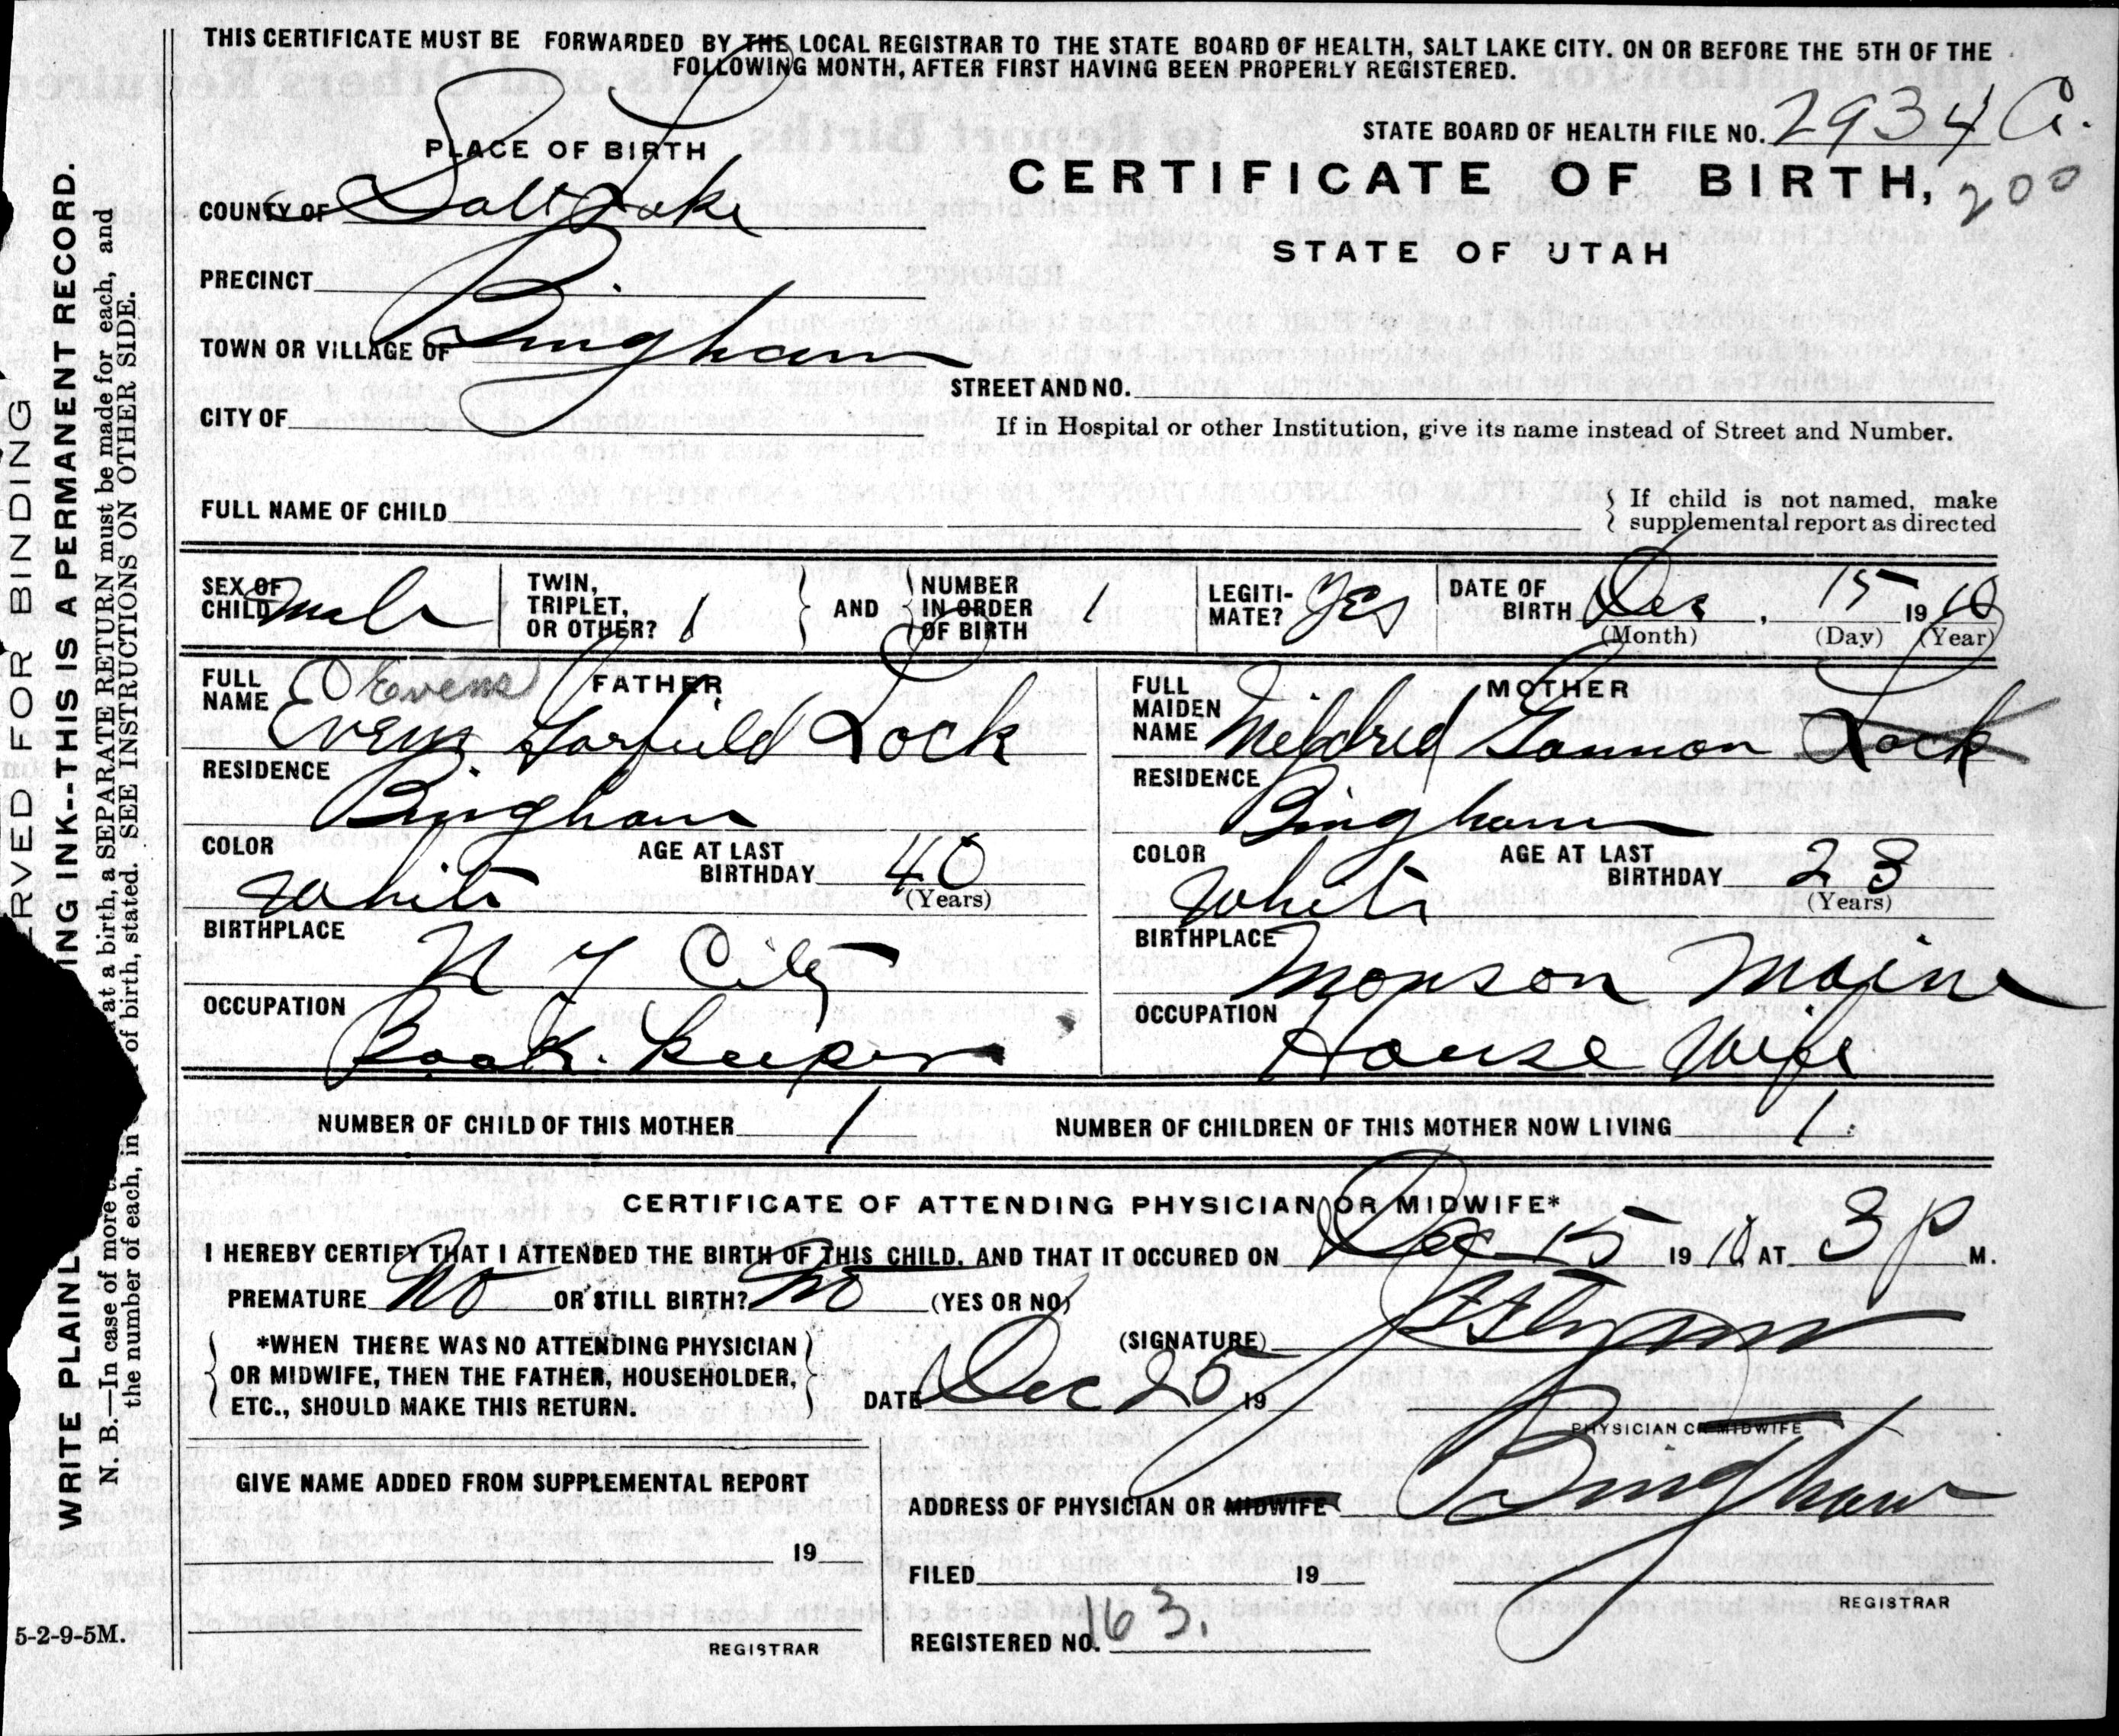 THIS CERTIFICATE MUST BE FORWARDED BY THE LOCAL REGISTRAR TO THE STATE BOARD OF HEALTH, SALT LAKE CITY. ON OR BEFORE THE 5TH OF THE
FOLLOWING MONTH, AFTER FIRST HAVING BEEN PROPERLY REGISTERED.
STATE BOARD OF HEALTH FILE NO. 2934
PLACE OF BIRTH
CERTIFICATE OF BIRTH,
200
COUNTY OF Salt Lake
STATE OF UTAH
PRECINCT
TOWN OR VILLAGE OF Bingham
STREET AND NO.
CITY OF
If in Hospital or other Institution, give its name instead of Street and Number.
FULL NAME OF CHILD
If child is not named, make
supplemental report as directed
SEX OF CHILD Male
TWIN, TRIPLET, OR OTHER? 1
AND NUMBER IN ORDER OF BIRTH 1
LEGITIMATE? Yes
DATE OF BIRTH Dec, 15 1910
(Month) (Day) (Year)
FATHER
FULL NAME Evens
Evens Garfield Lock
RESIDENCE
Bingham
COLOR White
AGE AT LAST BIRTHDAY 40
(Years)
BIRTHPLACE
N Y City
OCCUPATION
Book Keeper
MOTHER
FULL MAIDEN NAME Mildred Gannon Lock
RESIDENCE
Bingham
COLOR White
AGE AT LAST BIRTHDAY 23
(Years)
BIRTHPLACE
Monson Maine
OCCUPATION
House Wife
NUMBER OF CHILD OF THIS MOTHER 1 NUMBER OF CHILDREN OF THIS MOTHER NOW LIVING 1.
CERTIFICATE OF ATTENDING PHYSICIAN OR MIDWIFE*
I HEREBY CERTIFY THAT I ATTENDED THE BIRTH OF THIS CHILD, AND THAT IT OCCURED ON Dec 15 1910 AT 3 P M.
PREMATURE No OR STILL BIRTH? No (YES OR NO)
*WHEN THERE WAS NO ATTENDING PHYSICIAN
OR MIDWIFE, THEN THE FATHER, HOUSEHOLDER,
ETC., SHOULD MAKE THIS RETURN.
(SIGNATURE)
DATE Dec 25 19
PHYSICIAN OR MIDWIFE
GIVE NAME ADDED FROM SUPPLEMENTAL REPORT
19
REGISTRAR
ADDRESS OF PHYSICIAN OR MIDWIFE Bingham
FILED 19
REGISTRAR
REGISTERED NO. 163.
5-2-9-5M.
RVED FOR BINDING
WRITE PLAINL ING INK--THIS IS A PERMANENT RECORD.
N. B.—In case of more at a birth, a SEPARATE RETURN must be made for each, and
the number of each, in of birth, stated. SEE INSTRUCTIONS ON OTHER SIDE.